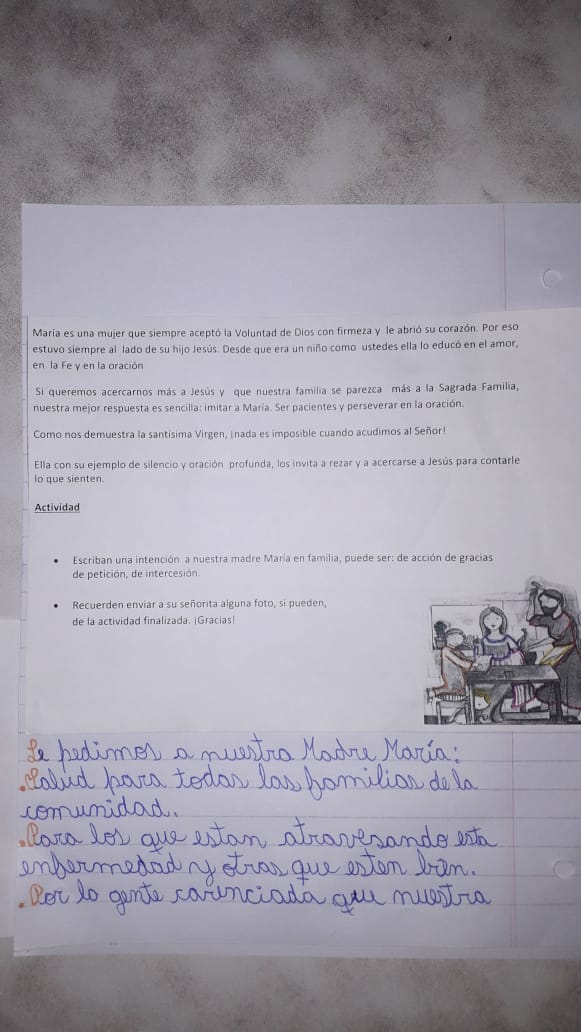 María es una mujer que siempre aceptó la Voluntad de Dios con firmeza y le abrió su corazón. Por eso
estuvo siempre al lado de su hijo Jesús. Desde que era un niño como ustedes ella lo educó en el amor,
en la Fe y en la oración
Si queremos acercarnos más a Jesús y que nuestra familia se parezca más a la Sagrada Familia,
nuestra mejor respuesta es sencilla: imitar a María. Ser pacientes y perseverar en la oración.
Como nos demuestra la santísima Virgen, ¡nada es imposible cuando acudimos al Señor!
Ella con su ejemplo de silencio y oración profunda, los invita a rezar y a acercarse a Jesús para contarle
lo que sienten.
Actividad
• Escriban una intención a nuestra madre María en familia, puede ser: de acción de gracias
de petición, de intercesión.
• Recuerden enviar a su señorita alguna foto, si pueden,
de la actividad finalizada. ¡Gracias!
Le pedimos a nuestra Madre María:
.Salud para todas las familias de la
comunidad.
.Para los que estan atravesando esta
enfermedad y otros que esten bien.
.Por la gente carenciada que nuestra